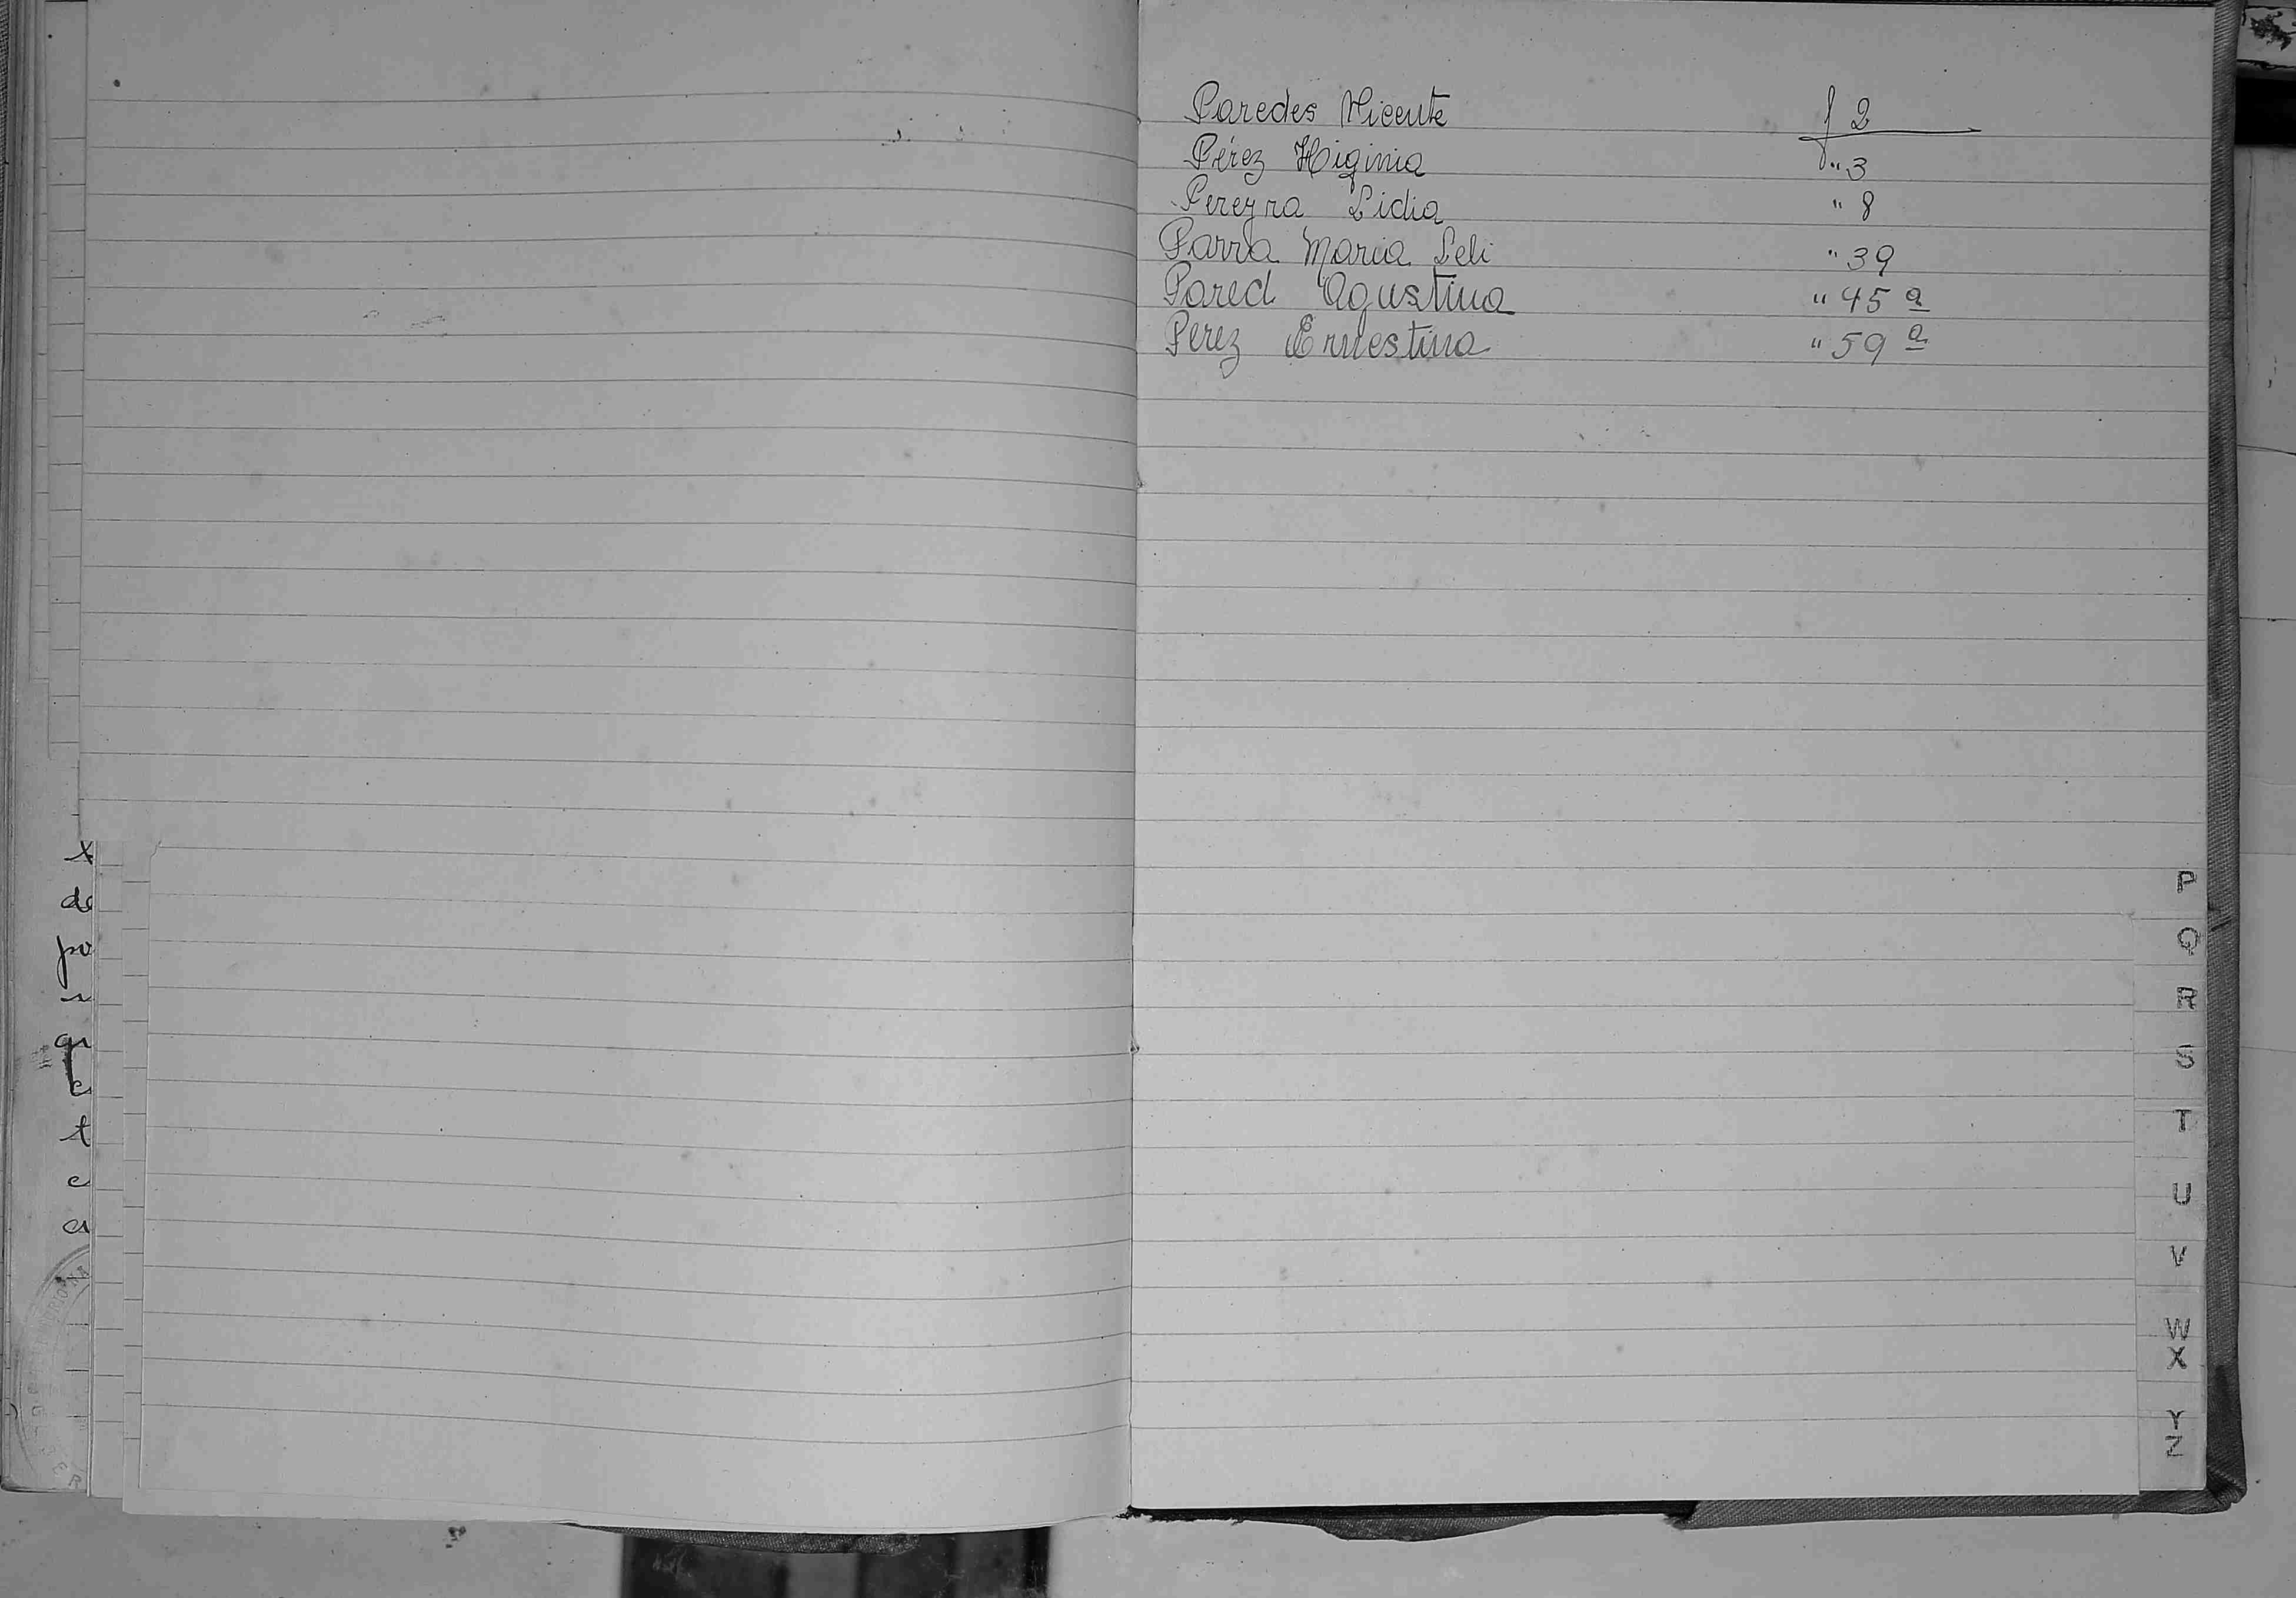 Paredes Vicente f 2
Pérez Higinia " 3
Pereyra Lidia " 8
Parra Maria Leli " 39
Pared Agustina " 45 a
Perez Ernestina " 59 a
x
de
po
qu
e
t
e
a
P
Q
R
S
T
U
V
W
X
Y
Z